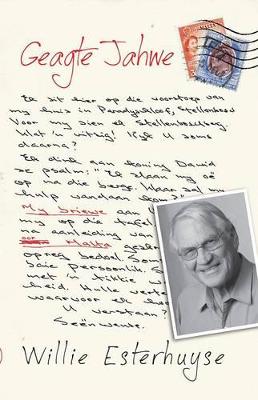 Geagte Jahwe
Ek sit hier op die voorstoep van
my huis in Paradyskloof, Stellenbosch
Voor my sien ek Stellenboschberg.
Wat 'n uitsig! Kyk U soms
daarna?
Ek dink aan koning Dawid
se psalm: "Ek slaan my oë
op na die berge. Waar sal my
hulp vandaan kom?"
My briewe aan
my op die tafel
na aanleiding van
oor Malta
opreg bedoel. Som
baie persoonlik. S
met 'n tikkie
heid. Hulle
waarvoor ek
U verstaan?
Seënwense.
Willie Esterhuyse